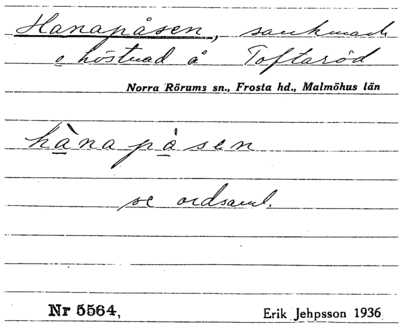 Hanapåsen, sankmark
o höstnad å Toftaröd
Norra Rörums sn., Frosta hd., Malmöhus län
hànapåsen
se ordsaml.
Nr 5564,
Erik Jehpsson 1936